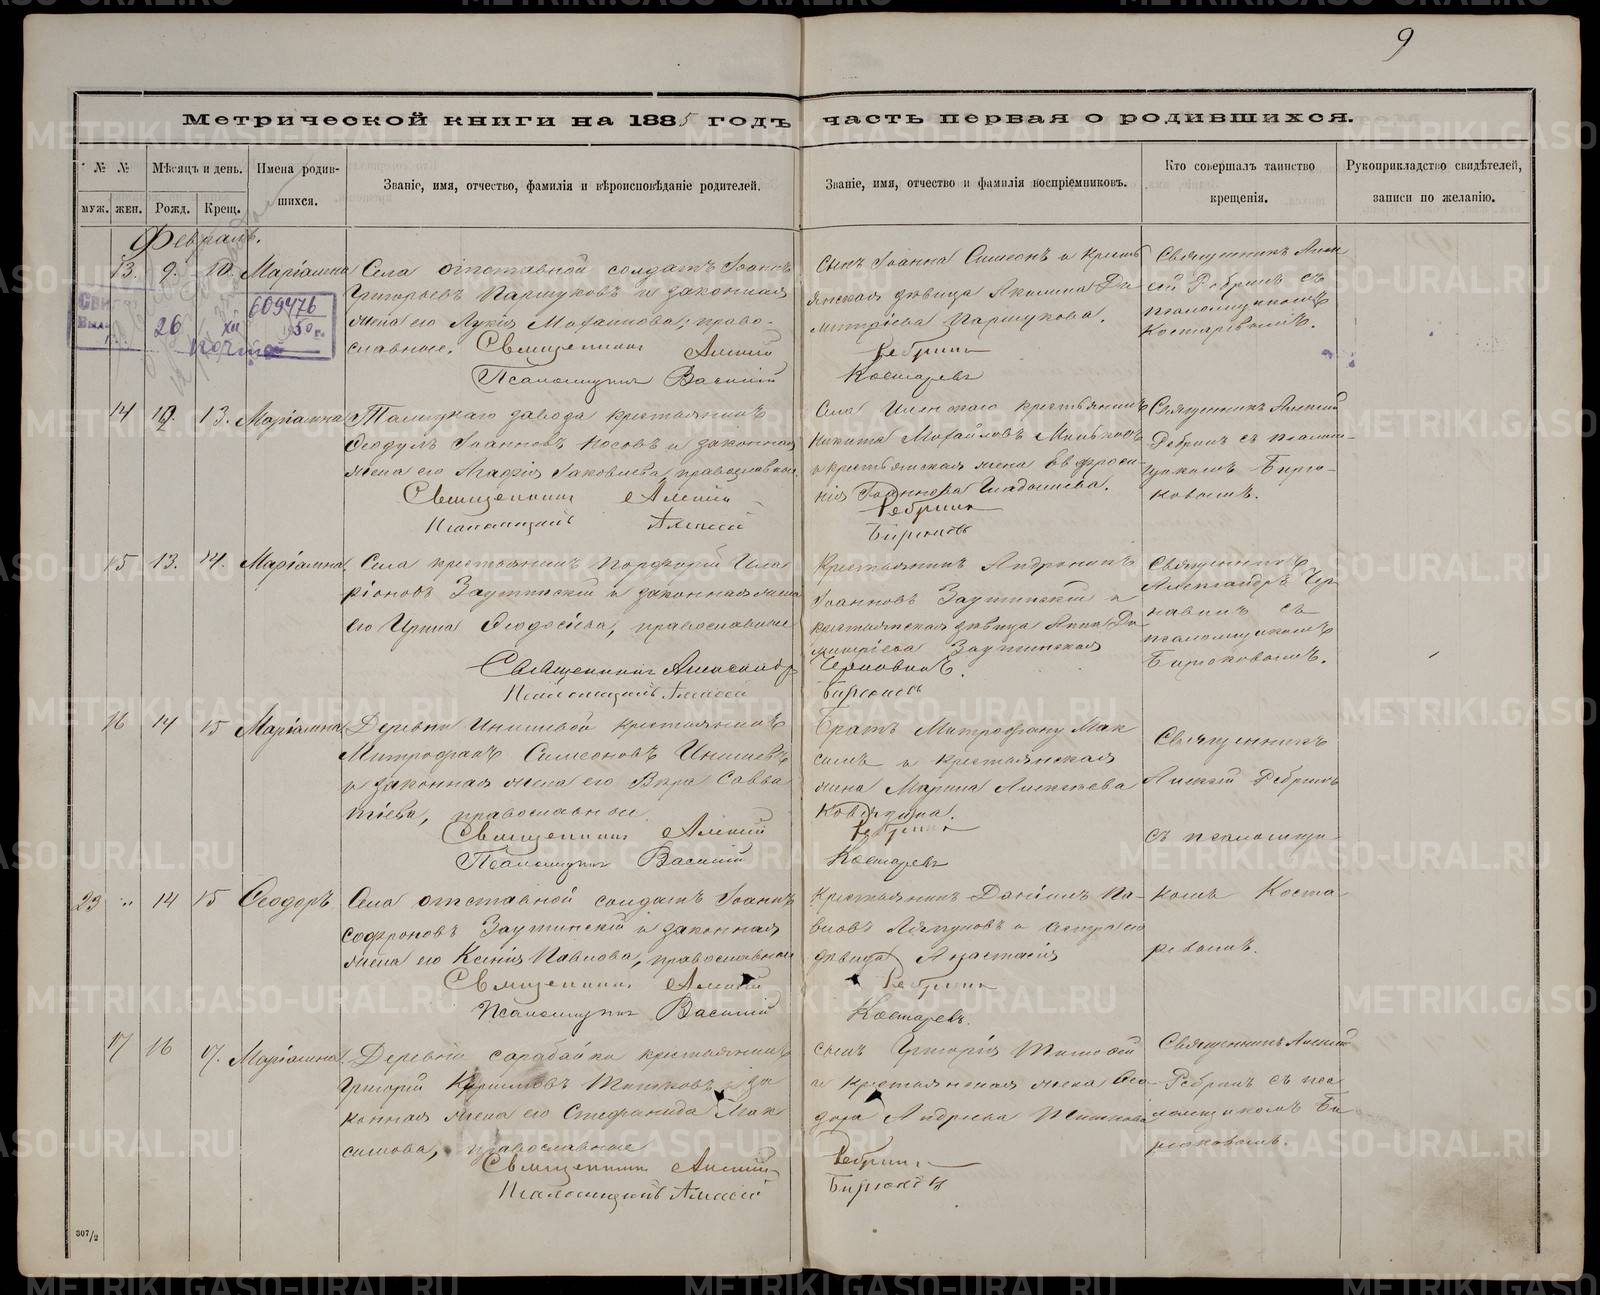 9
Метрической книги на 1885 годъ часть первая о родившихся.
№ №
муж. жен.
Мѣсяцъ и день.
Рожд. Крещ.
Имена родив-
шихся.
Званіе, имя, отчество, фамилія и вѣроисповѣданіе родителей.
Званіе, имя, отчество и фамилія воспріемниковъ.
Кто совершалъ таинство
крещенія.
Рукоприкладство свидѣтелей,
записи по желанію.
Февраль.
13. 9. 10. Маріамна
Села отставной солдатъ Іоаннъ
Григорьевъ Паршуковъ и законная
жена его Лукія, право-
славные. Священникъ Алексій Ребринъ
Псаломщикъ Василій Костаревъ
сынъ Іоанна Симеонъ и кресть
янская дѣвица Акилина Ди
митріева Паршукова.
Священникъ Алек
сій Ребринъ съ
псаломщикомъ
Костаревымъ.
26 XII 609476 1950 г.
почта
14 13. Маріамна
завода крестьянинъ
Ѳеодулъ Іоанновъ Носовъ и законная
жена его Іаковлева, православные
Священникъ Алексій Ребринъ
Псаломщикъ Алексій Бирюковъ
Села крестьянинъ
Никита
и крестьянская жена Евфроси-
нія Іоаннова Гладышева.
Священникъ Алексій
Ребринъ съ псалом-
щикомъ Бирю-
ковымъ.
15 13. 14. Маріамна
Села крестьянинъ Порфирій Ила
ріоновъ Заутинскій и законная жена
его Ирина Ѳеодосіева, православные
Священникъ Александръ Чернавинъ.
Псаломщикъ Алексій Бирюковъ
Крестьянинъ Андроникъ
Іоанновъ Заутинскій и
крестьянская дѣвица Анна Ди
митріева Заутинская
Священникъ
Александръ Чер
навинъ съ
псаломщикомъ
Бирюковымъ.
16 14 15 Маріамна
Деревни крестьянинъ
Митрофанъ Симеоновъ
и законная жена его Вѣра Савва
тіева, православные
Священникъ Алексій Ребринъ
Псаломщикъ Василій Костаревъ
Братъ Митрофану Мак
симъ и крестьянская
жена Марина Алексѣева
Священникъ
Алексій Ребринъ
съ псаломщи-
комъ Коста
ревымъ.
23 " 14 15 Ѳеодоръ.
Села отставной солдатъ Іоаннъ
Софроновъ Заутинскій и законная
жена его Ксенія Павлова, православные
Священникъ Алексій Ребринъ
Псаломщикъ Василій Костаревъ.
Крестьянинъ Даніилъ Па-
вловъ Ляпуновъ и сестра его
дѣвица Анастасія
17 16 17. Маріамна
Деревни Сарабайка крестьянинъ
Григорій Кирилловъ и за
конная жена его Стефанида Мак
симова, православные
Священникъ Алексій Ребринъ
Псаломщикъ Алексій Бирюковъ
сынъ Григорія Тимофей
и крестьянская жена Ѳео
дора Андреева
Священникъ Алексій
Ребринъ съ пса
ломщикомъ Би
рюковымъ.
307/2
METRIKI.GASO-URAL.RU